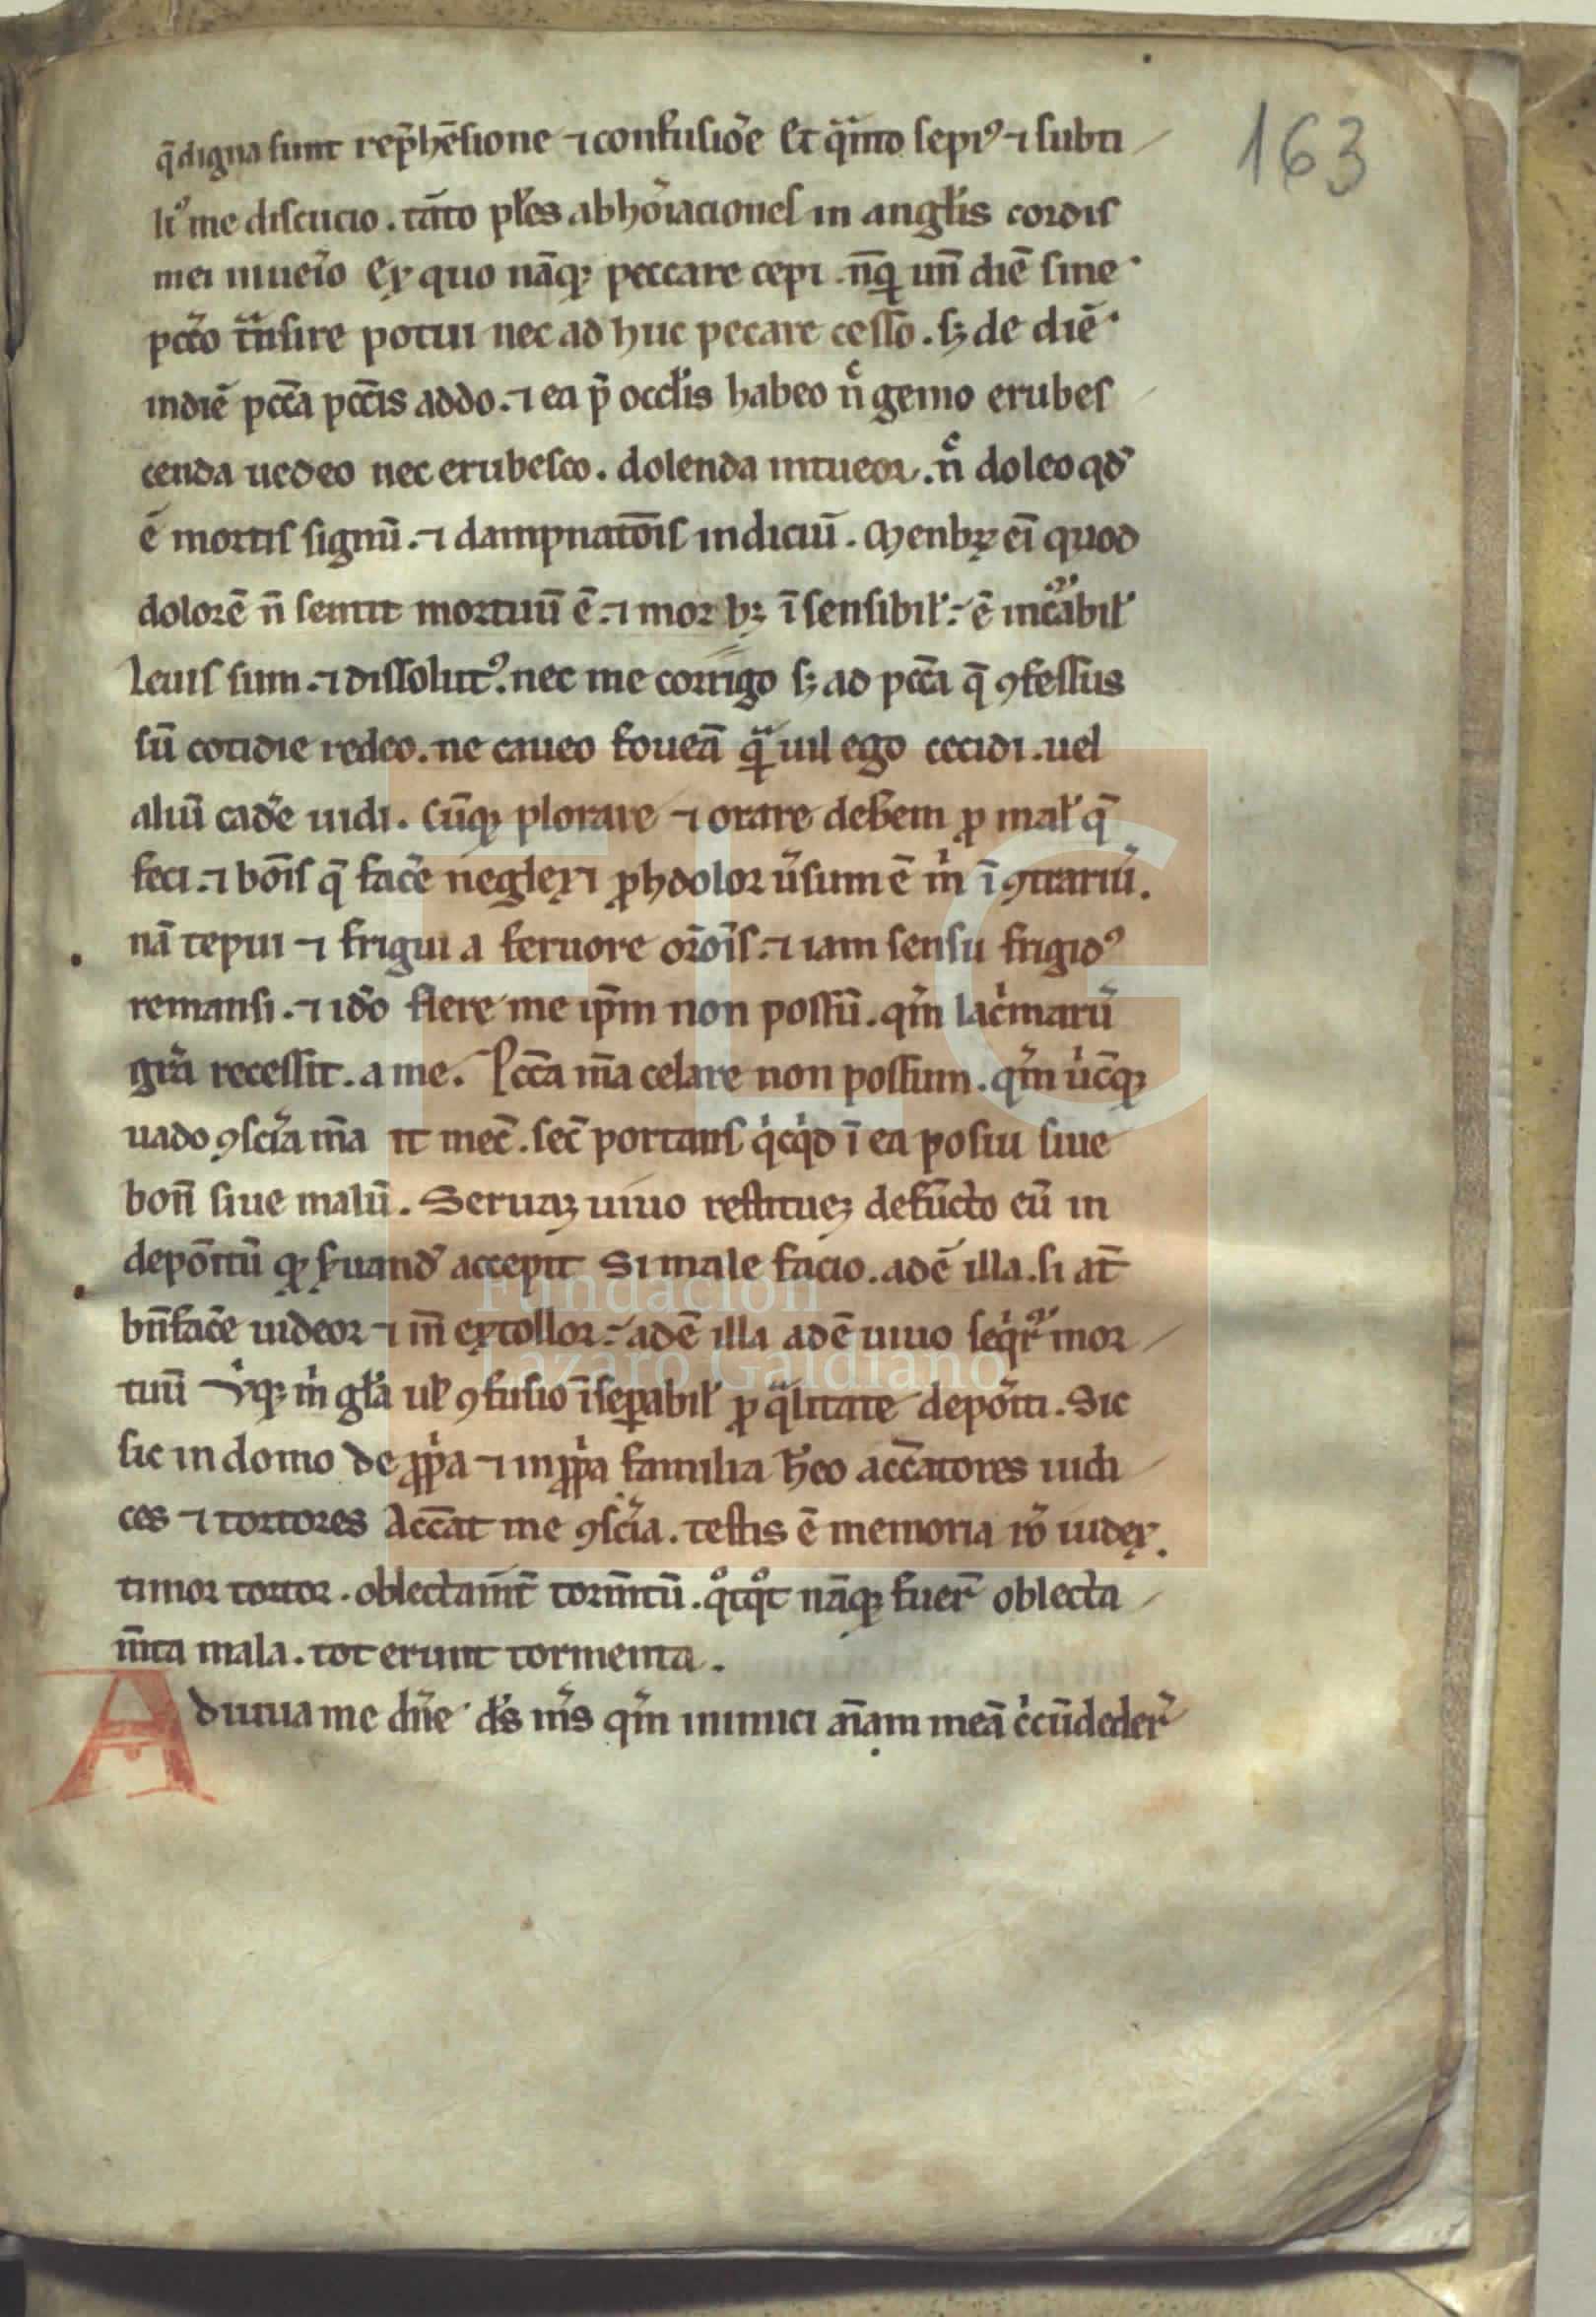 163
q̄ digna sunt rep̄hēsione ⁊ confusiōe Et q̄nto sepiꝰ ⁊ subti
liꝰ me discucio . tāto pl̄es abhōiacionel in angl̄is cordis
mei inueīo Ex quo nāqꝫ peccare cepi . nq̄ᷓ un̄ diē sine
pctō tᷓnsire potui nec ad huc pecare cesso . sꝫ de diē
indiē pcc̄a pcc̄is addo . ⁊ ea p̄ occl̄is habeo n̄ gemo erubes
cenda uedeo nec erubesco . dolenda intueor . n̄ doleo qd̄
ē mortis signū . ⁊ dampnatōis indiciū . Menbꝝ ei̅ quod
dolorē n̄ sentit mortuū ē . ⁊ morbꝫ īsensibil̄ . ē incᷓabil̄
Leuis sum . ⁊ dissolutꝰ . nec me corrigo sꝫ ad pcc̄a q̄ ꝯfessus
sū cotidie redeo . ne caueo foueā qᷓ uil ego cecidi . uel
aliū cad̄e uidi . cūqꝫ plorare ⁊ orare debem ꝓ mal̄ q̄
feci . ⁊ bōis q̄ fac̄e neglexi ꝓhdolor ūsum ē m̄ ī ꝯtrariū .
nā tepui ⁊ frigui a feruore orōis . ⁊ iam sensu frigidꝰ
remansi . ⁊ idō flere me ip̄m non possū . qm̄ lac̄marū
gr̄a recessit . a me . Pcc̄a m̄a celare non possum . qm̄ uc̄qꝫ
uado ꝯscīa m̄a n̄ mec̄ . sec̄ portans qⁱcqⁱd ī ea posiu siue
bon̄ siue malū . Seruaꝫ uiuo restitueꝫ defūcto eū in
depōitū qꝫ s̄uand̄ accepit Si male facio . adē illa . si at̄
bn̄fac̄e uideor ⁊ in̄ extollor . adē illa adē uiuo seqⁱr̄ mor
tuū Vⁱqꝫ m̄ gl̄a ul̄ ꝯfusio īseꝑabil̄ ꝓ qᷓlitate depōiti . Sic
sic in domo de ꝓpa ⁊ in ꝓpa familia h̄eo acc̄atores iudi
ces ⁊ tortores Acc̄at me ꝯscīa . testis ē memoria rō iudex .
timor tortor . oblectam̄t̄ torm̄tū . qͦtqͦt nāqꝫ fuer̄ oblecta
m̄ta mala . tot erunt tormenta .
Adiuua me dn̄e d̄s m̄s qm̄ inimici an̄am meā c̄cūdeder̄
FLG
Fundación
Lázaro Galdiano